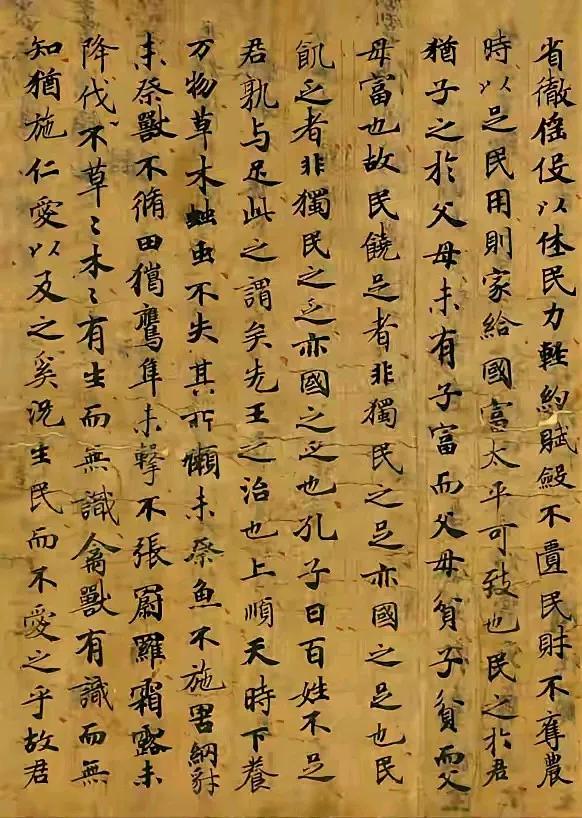 省徹傜伇以休民力輕約賦斂不匱民財不奪農
時以足民用則家給國富太平可致也民之於君
猶子之於父母未有子富而父母貧子貧而父
母富也故民饒足者非獨民之足亦國之足也民
飢乏者非獨民之乏亦國之乏也孔子曰百姓不足
君孰与足此之謂矣先王之治也上順天時下養
万物草木䖵虫不失其所獺未祭魚不施罟網豺
未祭獸不脩田獦鷹隼未擊不張罻羅霜露未
降伐不草〻木〻有生而無識禽獸有識而無
知猶施仁愛以及之奚况生民而不愛之乎故君